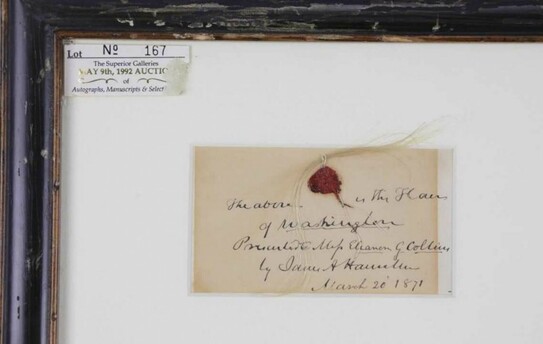 Lot Nº 167
The Superior Galleries
MAY 9th, 1992 AUCTION
of
Autographs, Manuscripts & Select
The above is the Hair
of Washington
Presented to Miss Eleanor G Collins
by James A Hamilton
March 20 1871